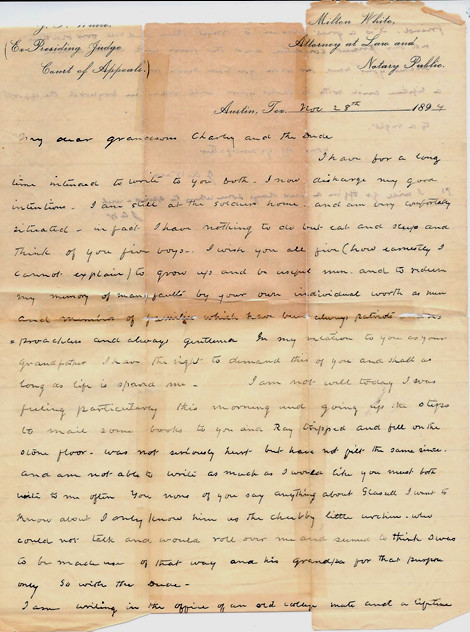 J. F. White,
(Ex-Presiding Judge
Court of Appeals.)
Milton White,
Attorney at Law and
Notary Public.
Austin, Tex. Nov 28th 1894
My dear grandsons Charley and the Dude
I have for a long
time intended to write to you both. I now discharge my good
intentions. I am still at the soldiers home. and am very comfortably
situated - in fact I have nothing to do but eat and sleep and
think of you five boys. I wish you all five (how earnestly I
cannot explain) to grow up and be useful men. and to redeem
my memory of many faults by your own individual worth as men
and members of which have been always patriots
proachless and always gentlemen In my relation to you as your
Grandfather I have the right to demand this of you and shall as
long as life is spared me - I am not well today I was
feeling particularly this morning and going up the steps
to mail some books to you and Ray tripped and fell on the
stone floor. was not seriously hurt but have not felt the same since.
and am not able to write as much as I would like you must both
write to me often You none of you say anything about Glasell I want to
know about I only know him as the chubby little urchin who
could not talk and would roll over me and seemed to think I was
to be made use of that way and his grandpa for that purpose
only So with the Dude -
I am writing in the office of an old college mate and a lifetime